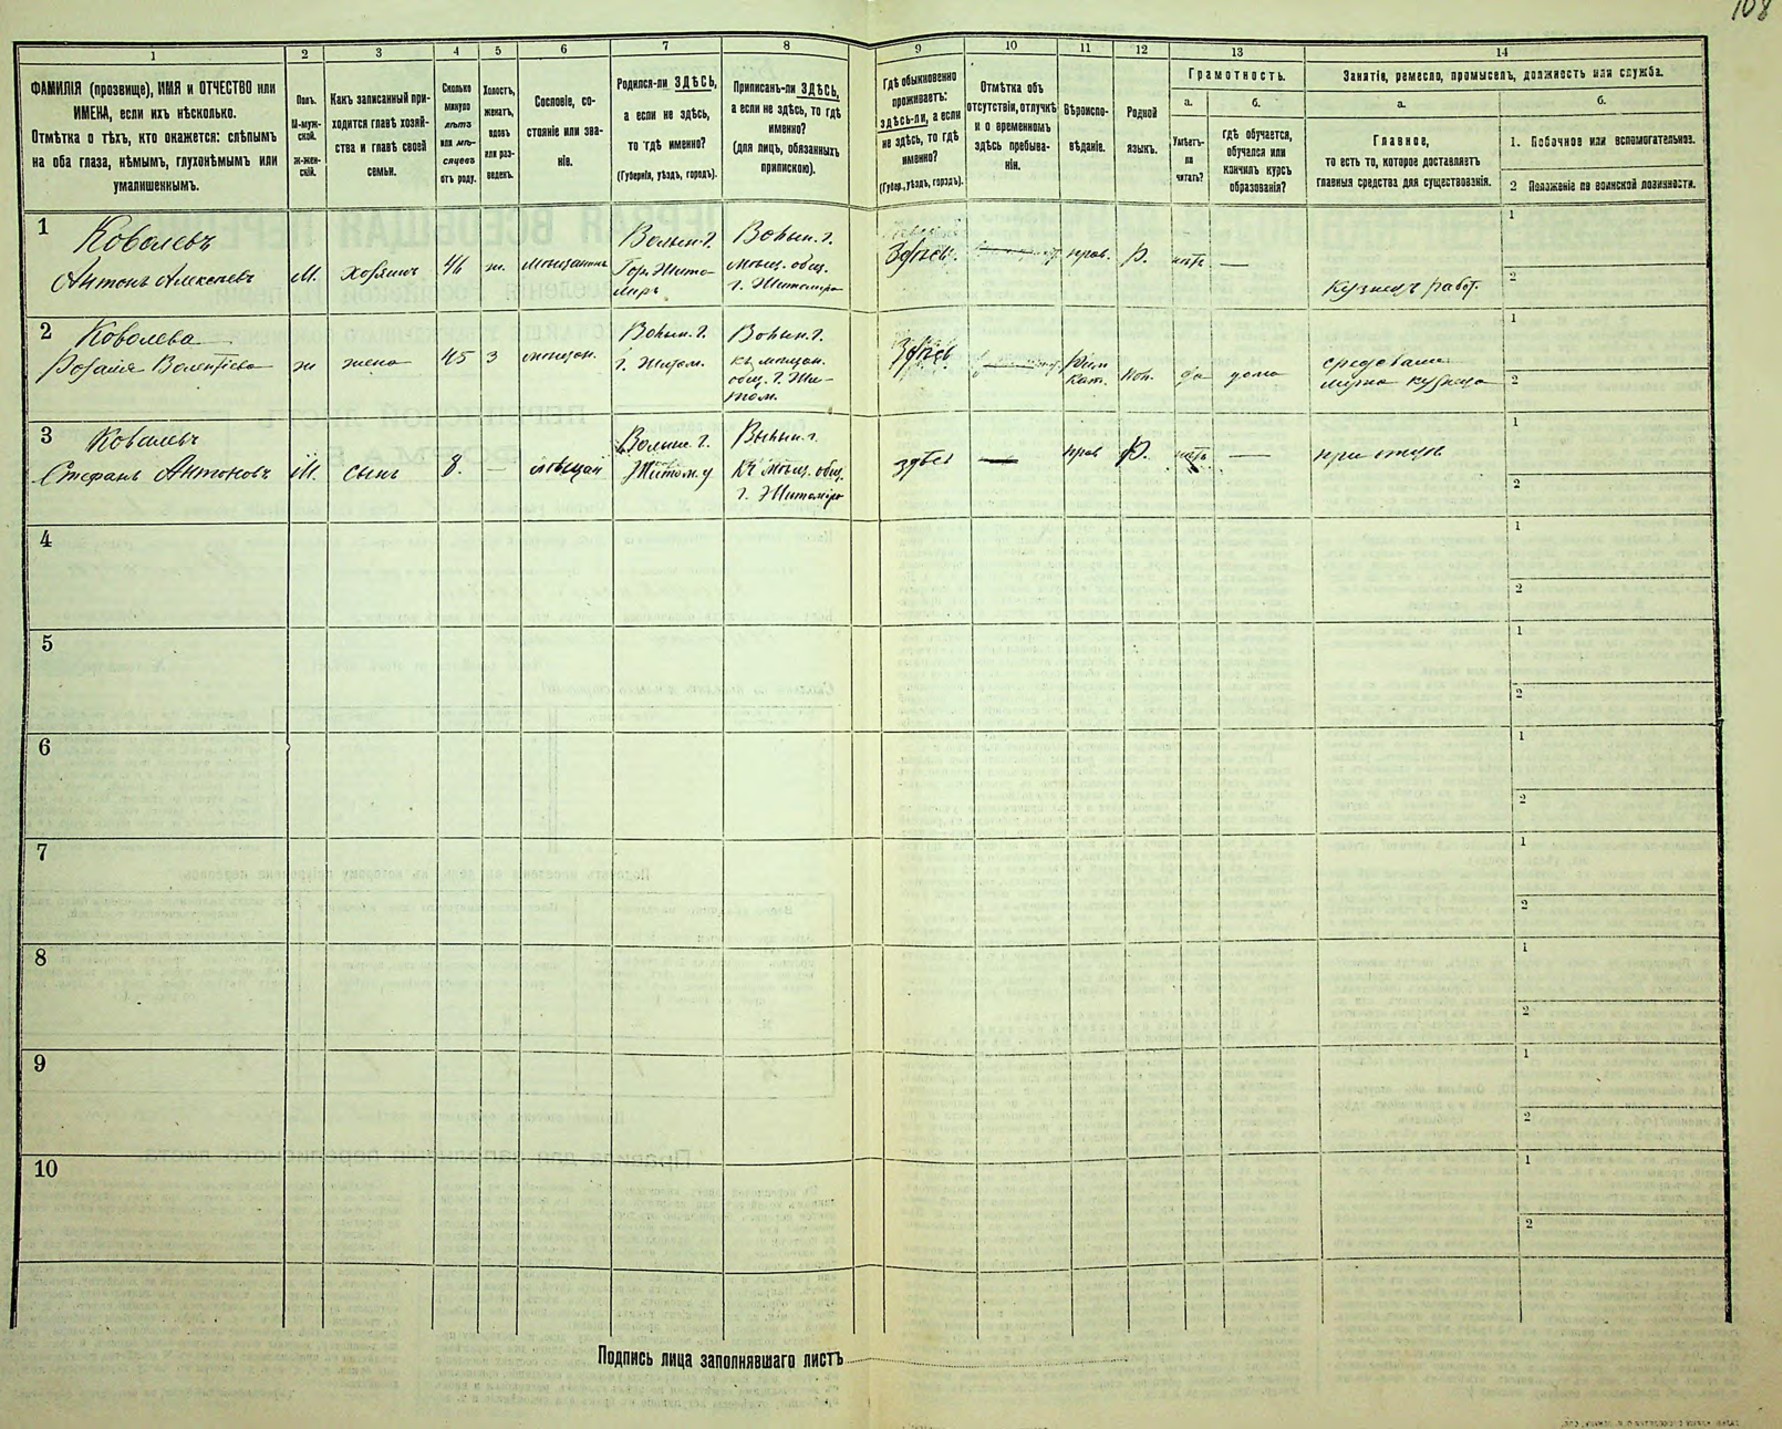 108
1
2
3
4
5
6
7
8
9
10
11
12
13
14
ФАМИЛІЯ (прозвище), ИМЯ и ОТЧЕСТВО или
ИМЕНА, если ихъ нѣсколько.
Отмѣтка о тѣхъ, кто окажется: слѣпымъ
на оба глаза, нѣмымъ, глухонѣмымъ или
умалишеннымъ.
Полъ.
М-муж-
ской.
Ж-жен-
скій.
Какъ записанный при-
ходится главѣ хозяй-
ства и главѣ своей
семьи.
Сколько
минуло
лѣтъ
или мѣ-
сяцевъ
отъ роду.
Холостъ,
женатъ,
вдовъ
или раз-
веденъ.
Сословіе, со-
стояніе или зва-
ніе.
Родился-ли ЗДѢСЬ,
а если не здѣсь,
то гдѣ именно?
(Губернія, уѣздъ, городъ).
Приписанъ-ли ЗДѢСЬ,
а если не здѣсь, то гдѣ
именно?
(для лицъ, обязанныхъ
припискою).
Гдѣ обыкновенно
проживаетъ:
здѣсь-ли, а если
не здѣсь, то гдѣ
именно?
(Губер., уѣздъ, городъ).
Отмѣтка объ
отсутствіи, отлучкѣ
и о временномъ
здѣсь пребыва-
ніи.
Вѣроиспо-
вѣданіе.
Родной
языкъ.
Грамотность.
а.
Умѣетъ-
ли
читать?
б.
Гдѣ обучается,
обучался или
кончилъ курсъ
образованія?
Занятіе, ремесло, промыселъ, должность или служба.
а.
Главное,
то есть то, которое доставляетъ
главныя средства для существованія.
б.
1. Побочное или вспомогательное.
2 Положеніе по воинской повинности.
1
Ковалевъ
Антонъ Алексѣевъ
М.
хозяинъ
46
ж.
мѣщанинъ
Волын. г.
Гор. Жито-
миръ
Волын. г.
мѣщ. общ.
г. Житоміра
Здѣсь
прав.
Р.
нѣтъ
—
кузнецъ работ.
1
2
2
Ковалева
Розалія
ж
жена
45
З
мѣщан.
Волын. г.
г. Житом.
Волын. г.
къ мѣщан.
общ. г. Жи-
том.
Здѣсь
Рим
Кат.
Пол.
да
дома
мужа кузнеца
1
2
3
Ковалевъ
Стефанъ Антоновъ
М.
сынъ
8.
—
мѣщан
Волын. г.
Житом. у
Волын. г.
Къ мѣщ. общ.
г. Житоміра
здѣсь
—
прав
Р.
нѣтъ
—
при отцѣ
1
2
4
1
2
5
1
2
6
1
2
7
1
2
8
1
2
9
1
2
10
1
2
Подпись лица заполнявшаго листъ